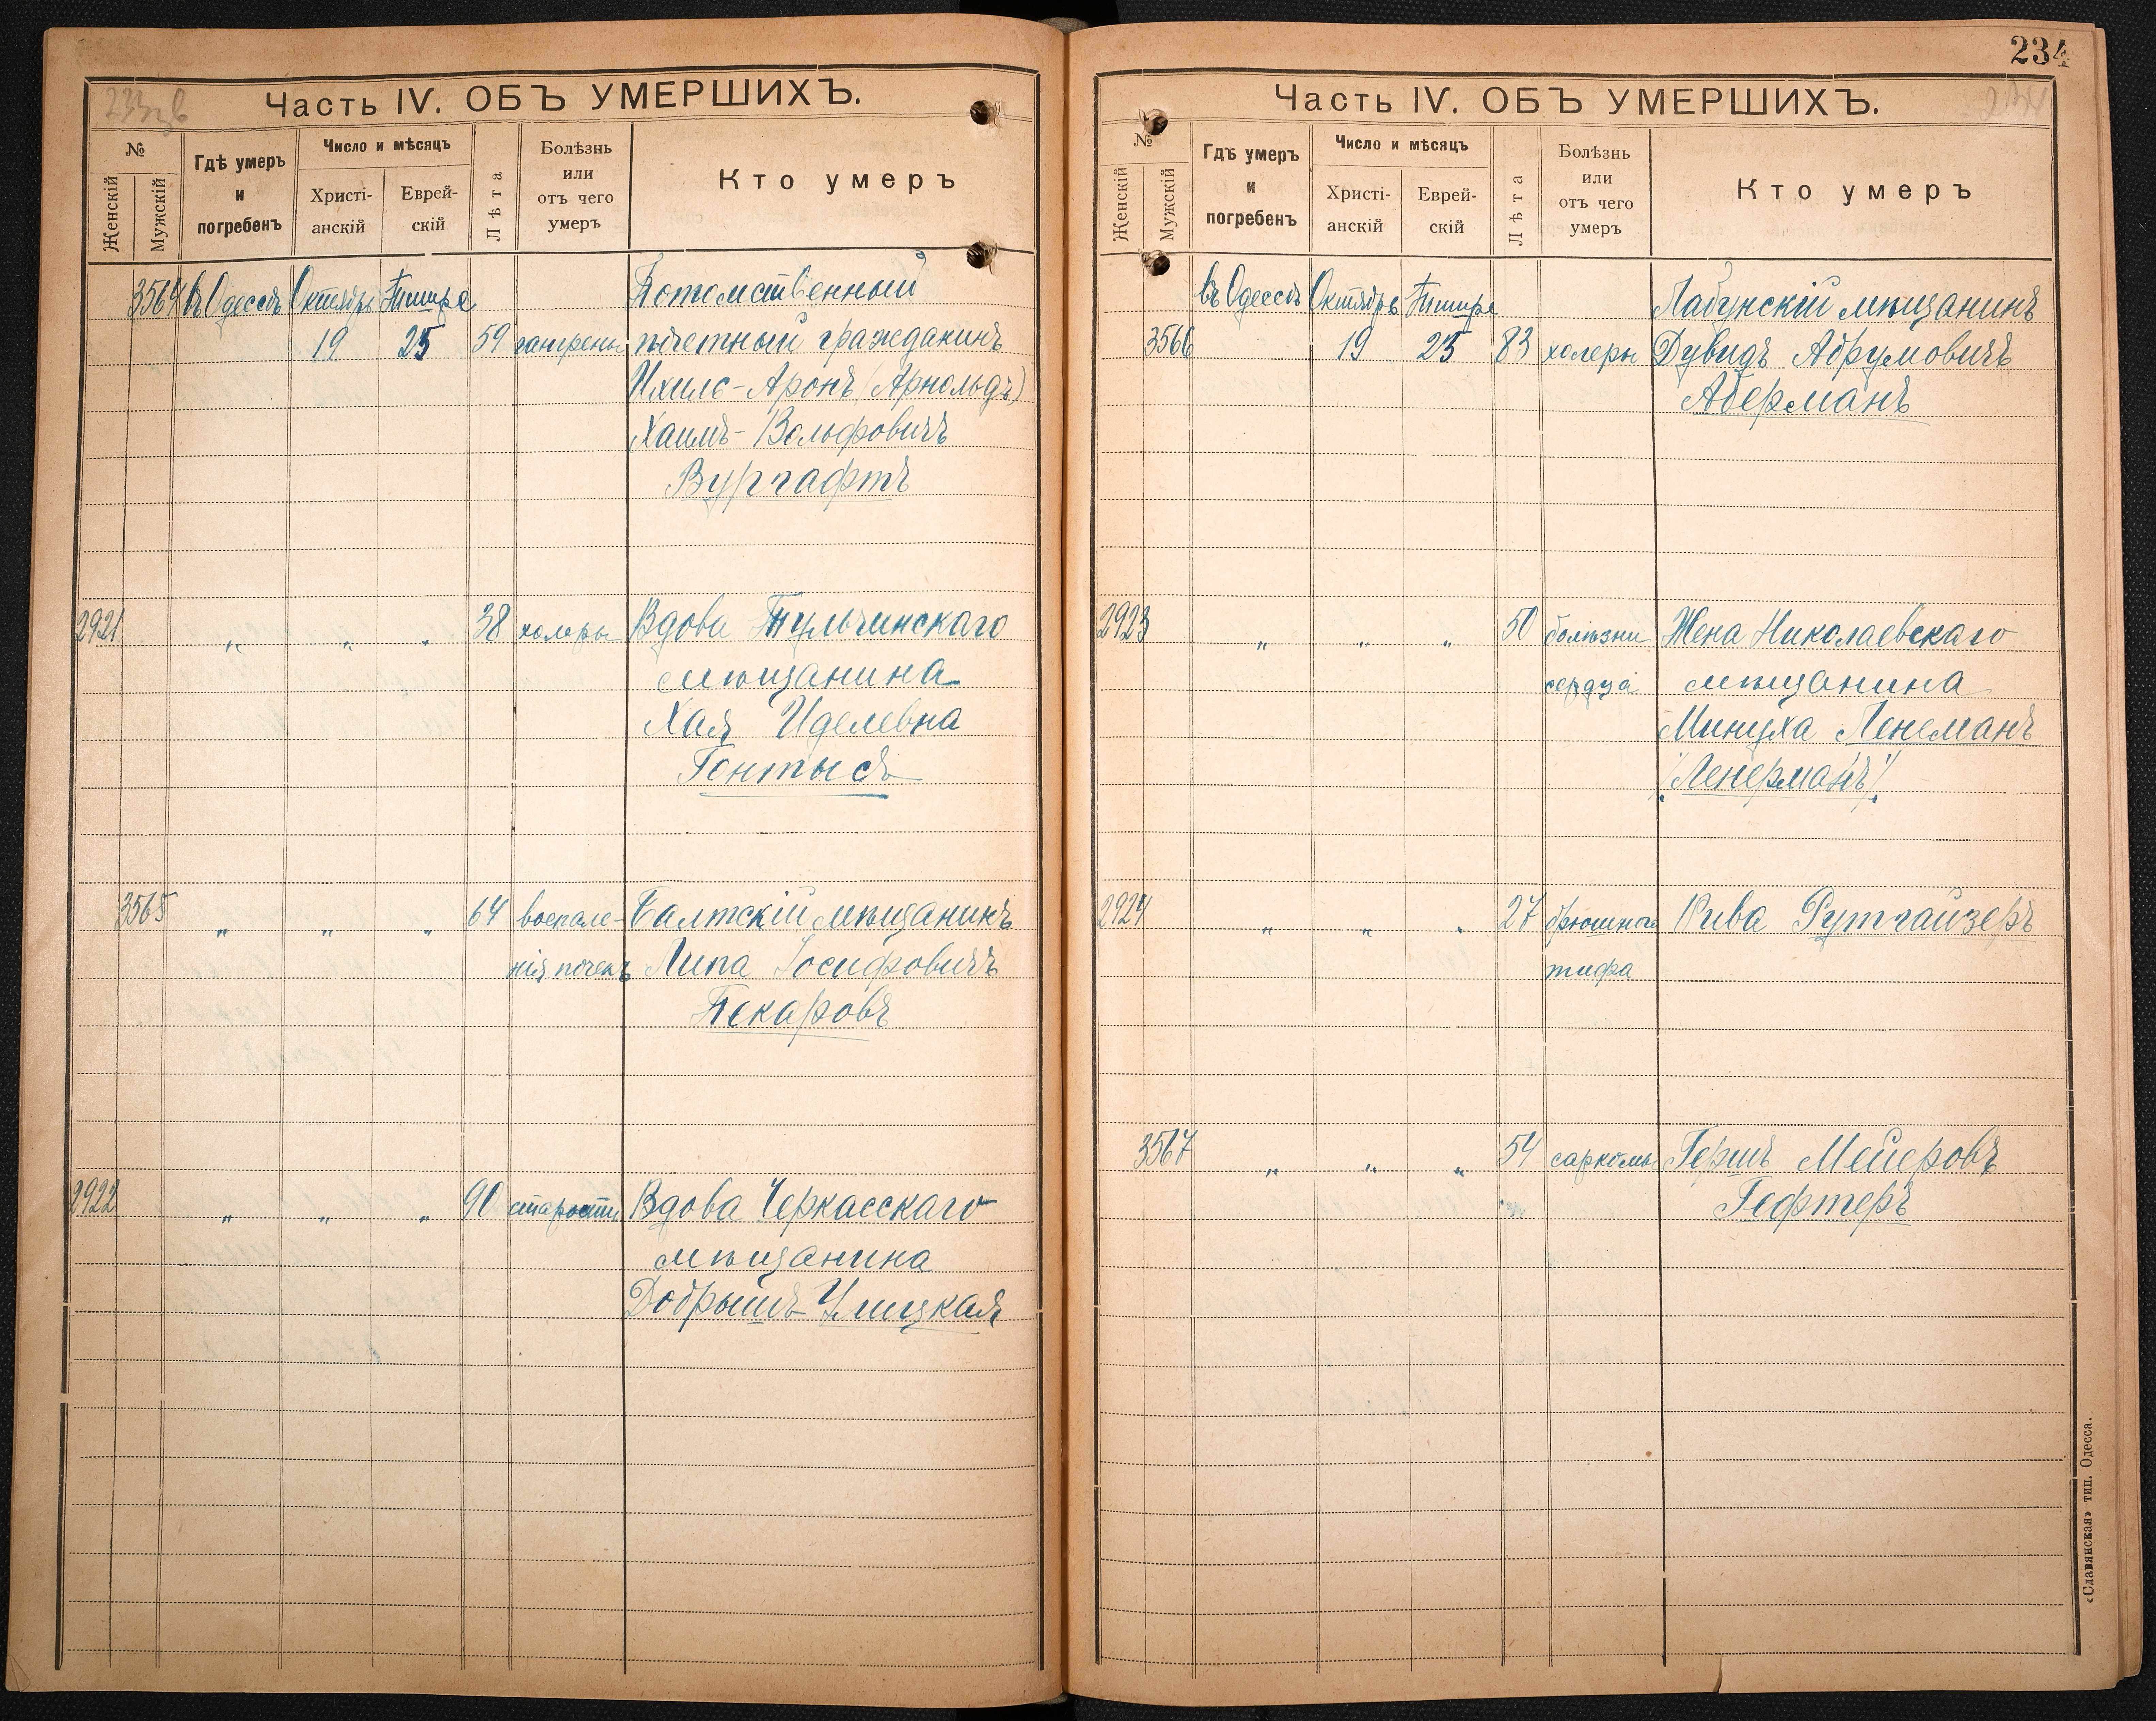 Часть IV. ОБЪ УМЕРШИХЪ.
№
Женскій
Мужскій
Гдѣ умеръ
и
погребенъ
Число и мѣсяцъ
Христі-
анскій
Еврей-
скій
Лѣта
Болѣзнь
или
отъ чего
умеръ
Кто умеръ
3564 въ Одессѣ Октябрь Тишре Потомственный
19 25 59 гангрены почетный гражданинъ
Ихилъ-Аронъ (Арнольдъ)
Хаимъ-Вольфовичъ
Вургафтъ
2921 „ „ „ 38 холеры Вдова Тульчинскаго
мѣщанина
Хая Иделевна
Гонтысъ
3565 „ „ „ 64 воспале- Балтскій мѣщанинъ
нія почекъ Липа Іосифовичъ
Пекаровъ
2922 „ „ „ 90 старости Вдова Черкасскаго
мѣщанина
Добрышъ Улицкая
234
Часть IV. ОБЪ УМЕРШИХЪ.
№
Женскій
Мужскій
Гдѣ умеръ
и
погребенъ
Число и мѣсяцъ
Христі-
анскій
Еврей-
скій
Лѣта
Болѣзнь
или
отъ чего
умеръ
Кто умеръ
въ Одессѣ Октябрь Тишре Лабунскій мѣщанинъ
3566 19 25 83 холеры Дувидъ Абрумовичъ
Аберманъ
2923 „ „ „ 50 болѣзни Жена Николаевскаго
сердца мѣщанина
Минуха Ленеманъ
/Ленерманъ/
2924 „ „ „ 27 брюшного Рива Рутгайзеръ
тифа
3567 „ „ „ 54 саркомы Гершъ Мейеровъ
Гефтеръ
«Славянская» тип. Одесса.